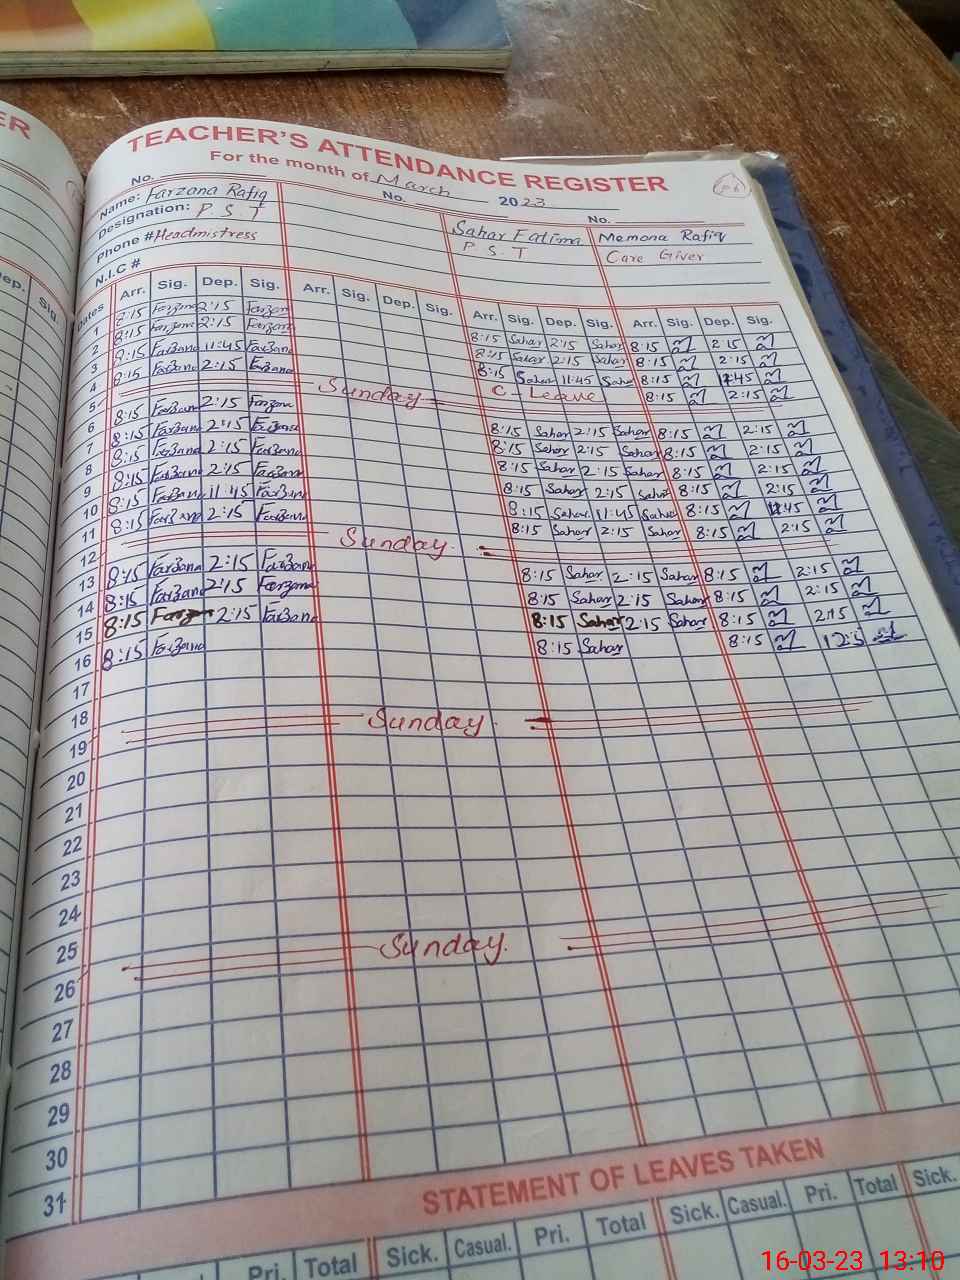 ER
TEACHER'S ATTENDANCE REGISTER
For the month of March 2023
No. No. No.
Name: Farzana Rafiq Sahar Fatima Memona Rafiq
Designation: P.S.T P.S.T Care Giver
Phone # Headmistress
N.I.C #
ep. Sig.
Dates Arr. Sig. Dep. Sig. Arr. Sig. Dep. Sig. Arr. Sig. Dep. Sig. Arr. Sig. Dep. Sig.
1 8:15 Farzana 2:15 Farzana 8:15 Sahar 2:15 Sahar 8:15 2:15
2 8:15 Farzana 2:15 Farzana 8:15 Sahar 2:15 Sahar 8:15 2:15
3 8:15 FarZana 11:45 FarZana 8:15 Sahar 11:45 Sahar 8:15 11:45
4 8:15 FarZana 2:15 FarZana C-Leave 8:15 2:15
5 Sunday
6 8:15 FarZana 2:15 Farzana 8:15 Sahar 2:15 Sahar 8:15 2:15
7 8:15 FarZana 2:15 FarZana 8:15 Sahar 2:15 Sahar 8:15 2:15
8 8:15 FarZana 2:15 FarZana 8:15 Sahar 2:15 Sahar 8:15 2:15
9 8:15 FarZana 2:15 FarZana 8:15 Sahar 2:15 Sahar 8:15 2:15
10 8:15 FarZana 11:45 FarZana 8:15 Sahar 11:45 Sahar 8:15 11:45
11 8:15 FarZana 2:15 FarZana 8:15 Sahar 2:15 Sahar 8:15 2:15
12 Sunday.
13 8:15 FarZana 2:15 FarZana 8:15 Sahar 2:15 Sahar 8:15 2:15
14 8:15 FarZana 2:15 Farzana 8:15 Sahar 2:15 Sahar 8:15 2:15
15 8:15 Farzana 2:15 FarZana 8:15 Sahar 2:15 Sahar 8:15 2:15
16 8:15 FarZana 8:15 Sahar 8:15
17
18
19 Sunday.
20
21
22
23
24
25
26 Sunday.
27
28
29
30
31
STATEMENT OF LEAVES TAKEN
Pri. Total Sick. Casual. Pri. Total Sick. Casual. Pri. Total Sick.
16-03-23 13:10